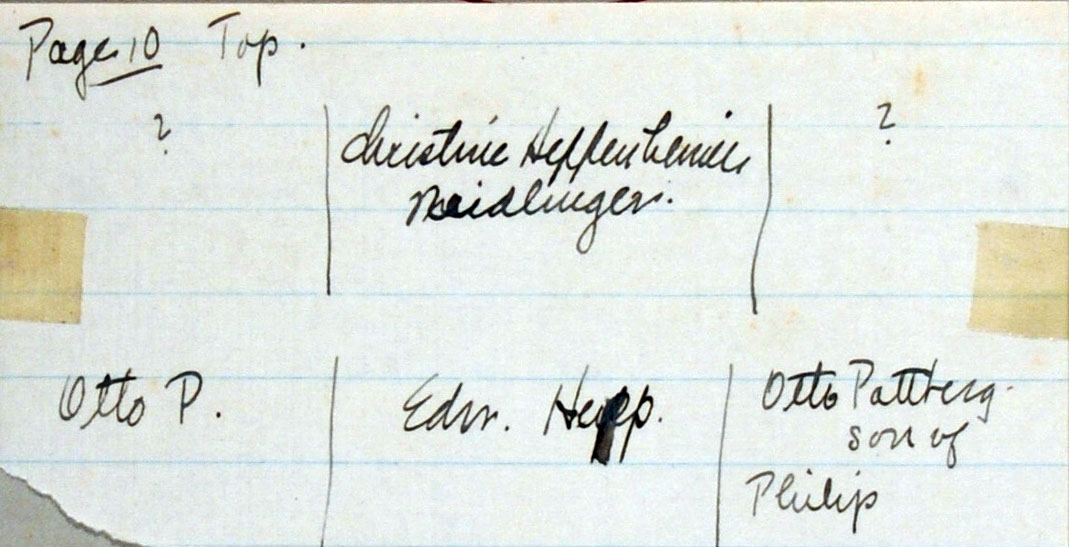 Page 10 Top.
?
Christine Heppenheimer
Neidlinger.
?
Otto P.
Edw. Hepp.
Otto Pattberg
son of
Philip